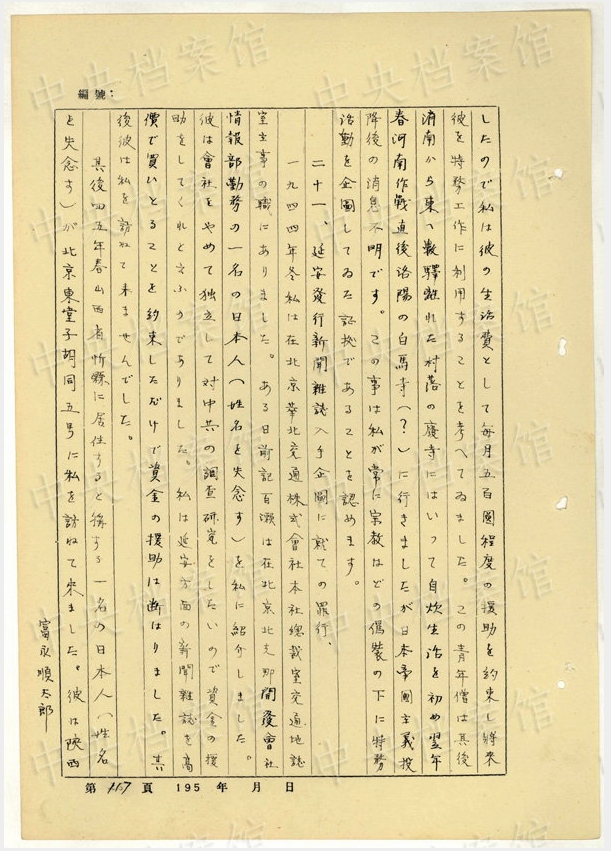 編號：
したので私は彼の生活費として毎月五百圓程度の援助を約束し將來
彼を特務工作に利用することを考へてゐました。この青年僧は其後
済南から東へ数驛離れた村落の廢寺にはいって自炊生活を初め翌年
春河南作戦直後洛陽の白馬寺(？)に行きましたが日本帝國主義投
降後の消息不明です。この事は私が常に宗教はどの僞装の下に特務
活動を企圖してゐた証拠であることを認めます。
二十一、延安發行新聞雜誌入手企圖に就ての罪行、
一九四四年冬私は在北京華北交通株式會社本社總裁室交通地誌
室主事の職にありました。ある日前記百瀬は在北京北支那開發會社
情報部勤務の一名の日本人(姓名を失念す)を私に紹介しました。
彼は會社をやめて独立して対中共の調査研究をしたいので資金の援
助をしてくれと云ふのでありました。私は延安方面の新聞雜誌を高
價で買いとることを約束しただけで資金の援助は断はりました。其
後彼は私を訪ねて来ませんでした。
其後四五年春山西省忻縣に居住すると稱する一名の日本人(姓名
を失念す)が北京東堂子胡同五号に私を訪ねて來ました。彼は陝西
富永順太郎
第117頁 195 年 月 日
中央档案馆